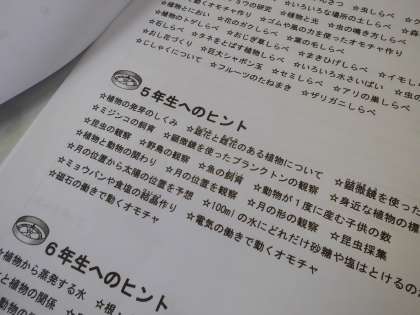 ョウの研究 ☆いろいろな場所の土しらべ ☆虫しらべ
☆植物とにおい ☆植物と光 ☆虫の鳴き方しらべ
☆植物のトゲしらべ ☆花のガクしらべ ☆ゴムや風の力を使ったオモチャ作り
☆石しらべ ☆おじぎ草しらべ ☆葉の毛しらべ
☆おし花づくり ☆タネをとばす植物しらべ ☆まきひげしらべ ☆イモし
☆じしゃくについて ☆巨大シャボン玉 ☆セミしらべ ☆いろいろ水さいばい
☆フルーツのたねまき ☆ザリガニしらべ ☆アリの巣しらべ
5年生へのヒント
☆植物の発芽のしくみ ☆雄花と雌花のある植物について ☆顕微鏡を使った
☆ミジンコの飼育 ☆顕微鏡を使ったプランクトンの観察 ☆身近な植物の標
☆昆虫の観察 ☆野鳥の観察 ☆魚の飼育 ☆動物が1度に産む子供の数
☆植物と動物の関わり ☆月の位置の観察 ☆月の形の観察 ☆昆虫採集
☆月の位置から太陽の位置を予想 ☆100mlの水にどれだけ砂糖や塩はとけるの
☆ミョウバンや食塩の結晶作り ☆電気の働きで動くオモチャ
☆磁石の働きで動くオモチャ
6年生へのヒント
☆植物から蒸発する水 ☆根
と植物の関係